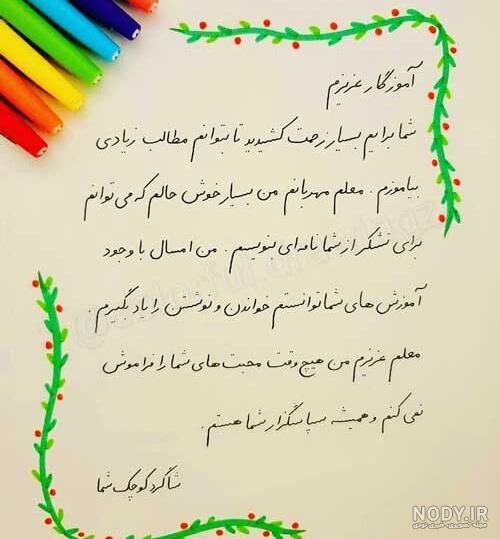 آموزگار عزیزم
شما برایم بسیار زحمت کشیدید تا بتوانم مطالب زیادی
بیاموزم . معلم مهربانم من بسیار خوش حالم که می توانم
برای تشکر از شما نامه ای بنویسم . من امسال با وجود
آموزش های شما توانستم خواندن و نوشتن را یاد بگیرم .
معلم عزیزم من هیچ وقت محبت های شما را فراموش
نمی کنم و همیشه سپاسگزار شما هستم .
شاگرد کوچک شما
NODY.IR